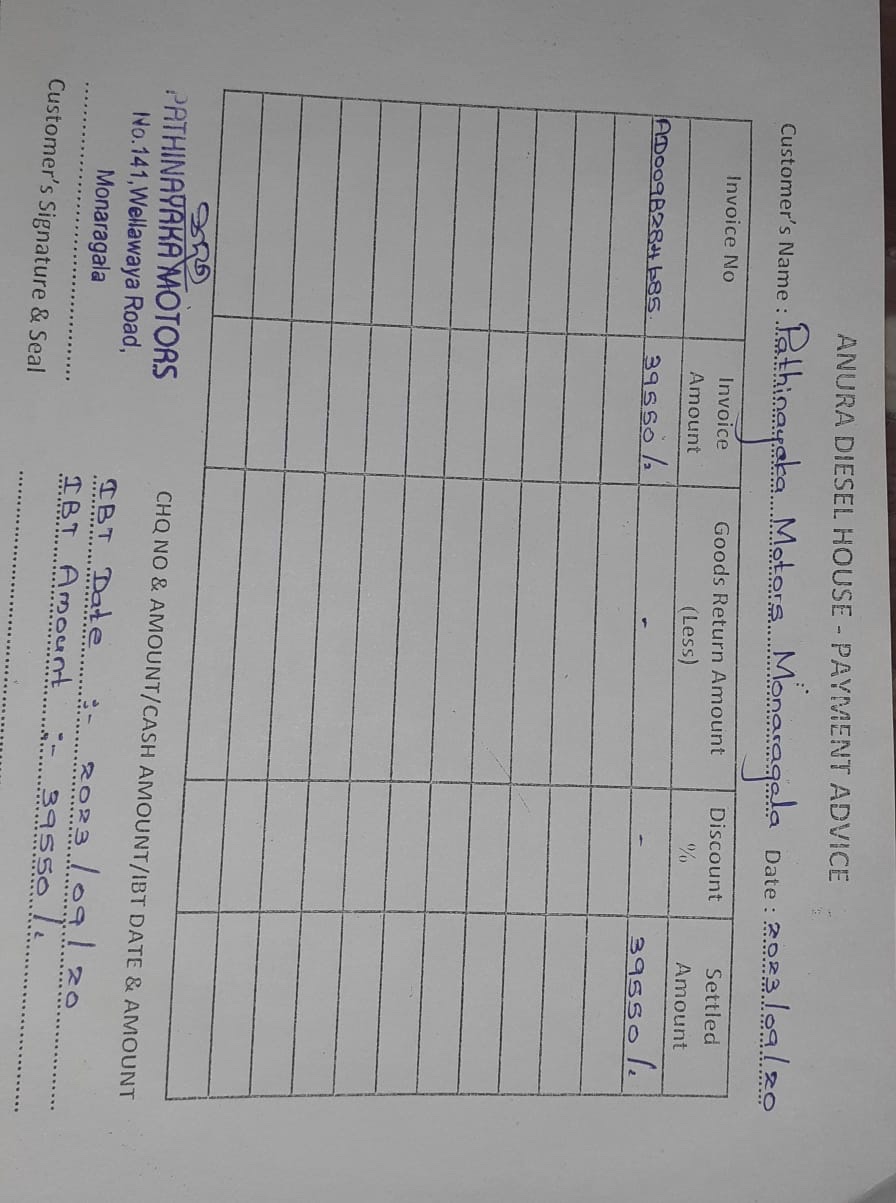 ANURA DIESEL HOUSE - PAYMENT ADVICE
Customer's Name : Pathinayaka Motors Monaragala Date : 2023/09/20
Invoice No Invoice Amount Goods Return Amount (Less) Discount % Settled Amount
AD009B284685 39550/= - - 39550/=
CHQ NO & AMOUNT/CASH AMOUNT/IBT DATE & AMOUNT
PATHINAYAKA MOTORS
No.141,Wellawaya Road,
Monaragala
Customer's Signature & Seal
IBT Date :- 2023/09/20
IBT Amount :- 39550/=